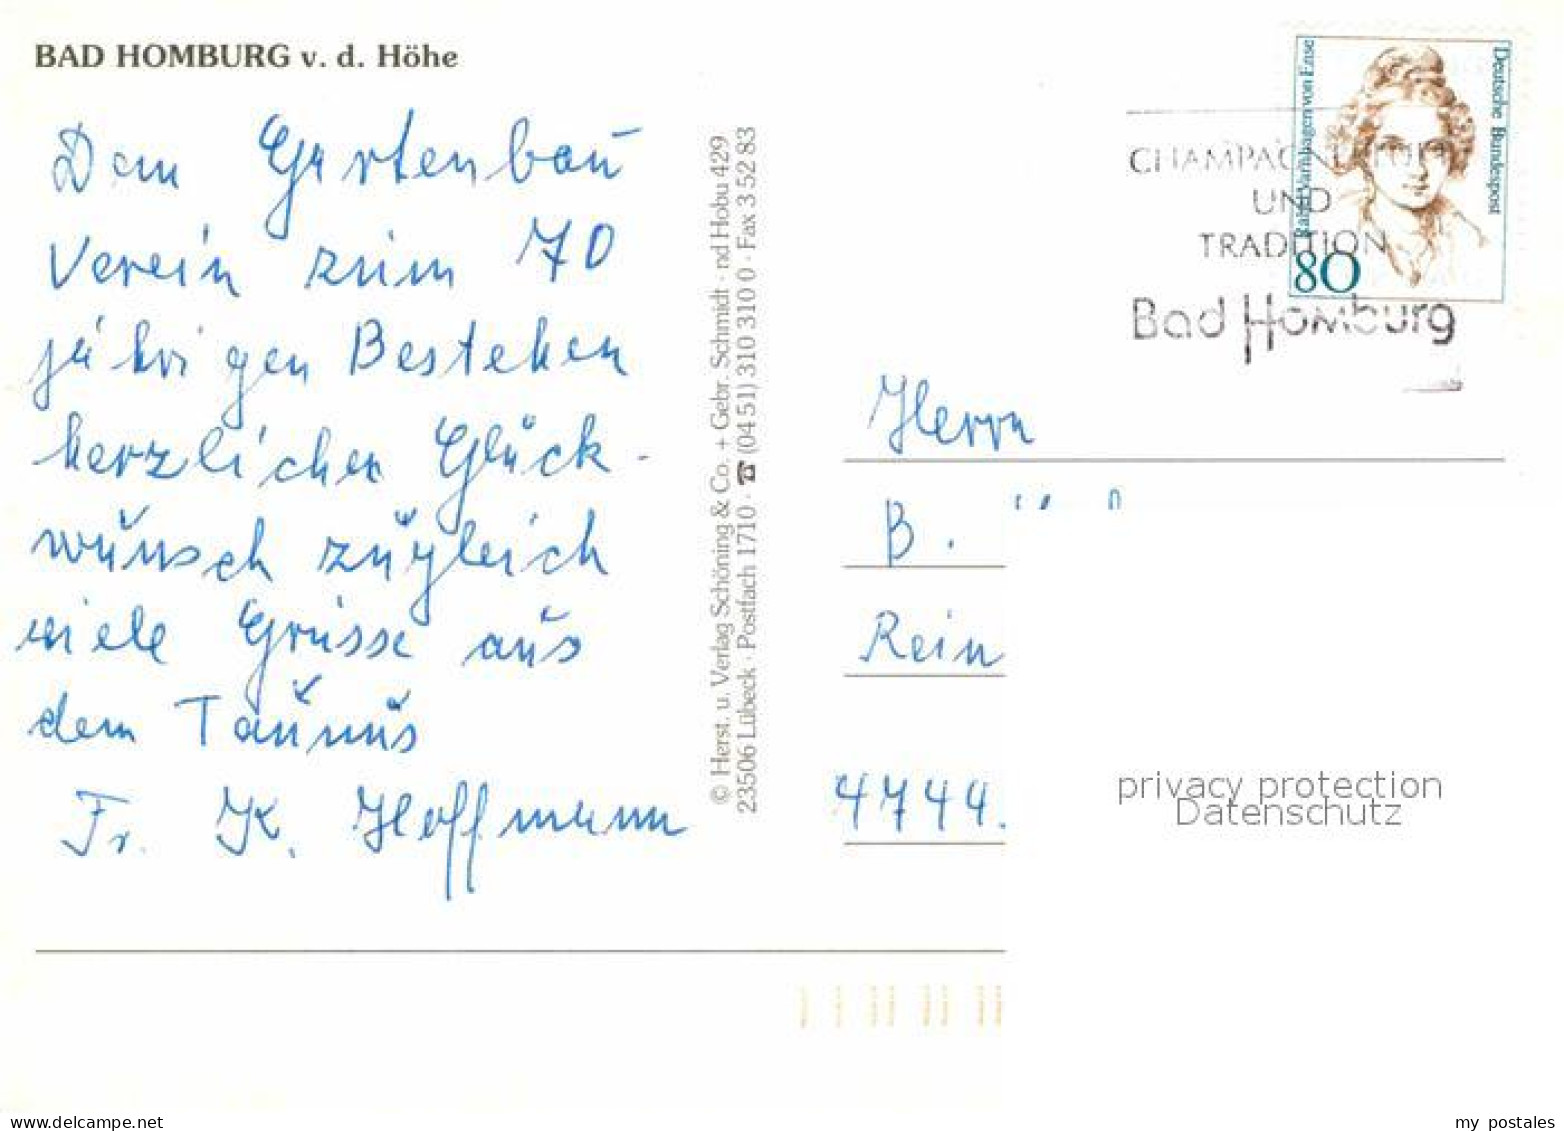 BAD HOMBURG v. d. Höhe
Dem Gartenbau
Verein zum 70
jährigen Bestehen
herzlichen Glück-
wunsch zugleich
viele Grüsse aus
dem Taunus
Fr. K. Hoffmann
© Herst. u. Verlag Schöning & Co. + Gebr. Schmidt · nd Hobu 429
23506 Lübeck · Postfach 1710 · ☎ (04 51) 310 310 0 · Fax 3 52 83
Rahel Varnhagen von Ense
Deutsche Bundespost
80
CHAMPAGNERLUFT
UND
TRADITION
Bad Homburg
Herrn
B.
Rein
4744.
privacy protection
Datenschutz
delcampe.net
my postales